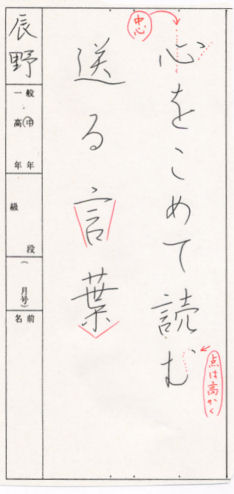 中心
心をこめて読む
点は高かく
送る言葉
辰野
一般
高 中
年 年
級
段
(
月号)
名前